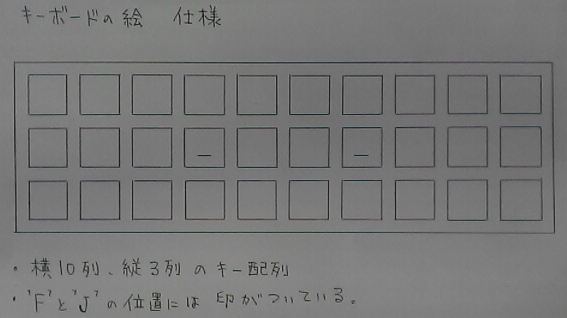 キーボードの絵 仕様
・横10列、縦3列のキー配列
・'F'と'J'の位置には印がついている。